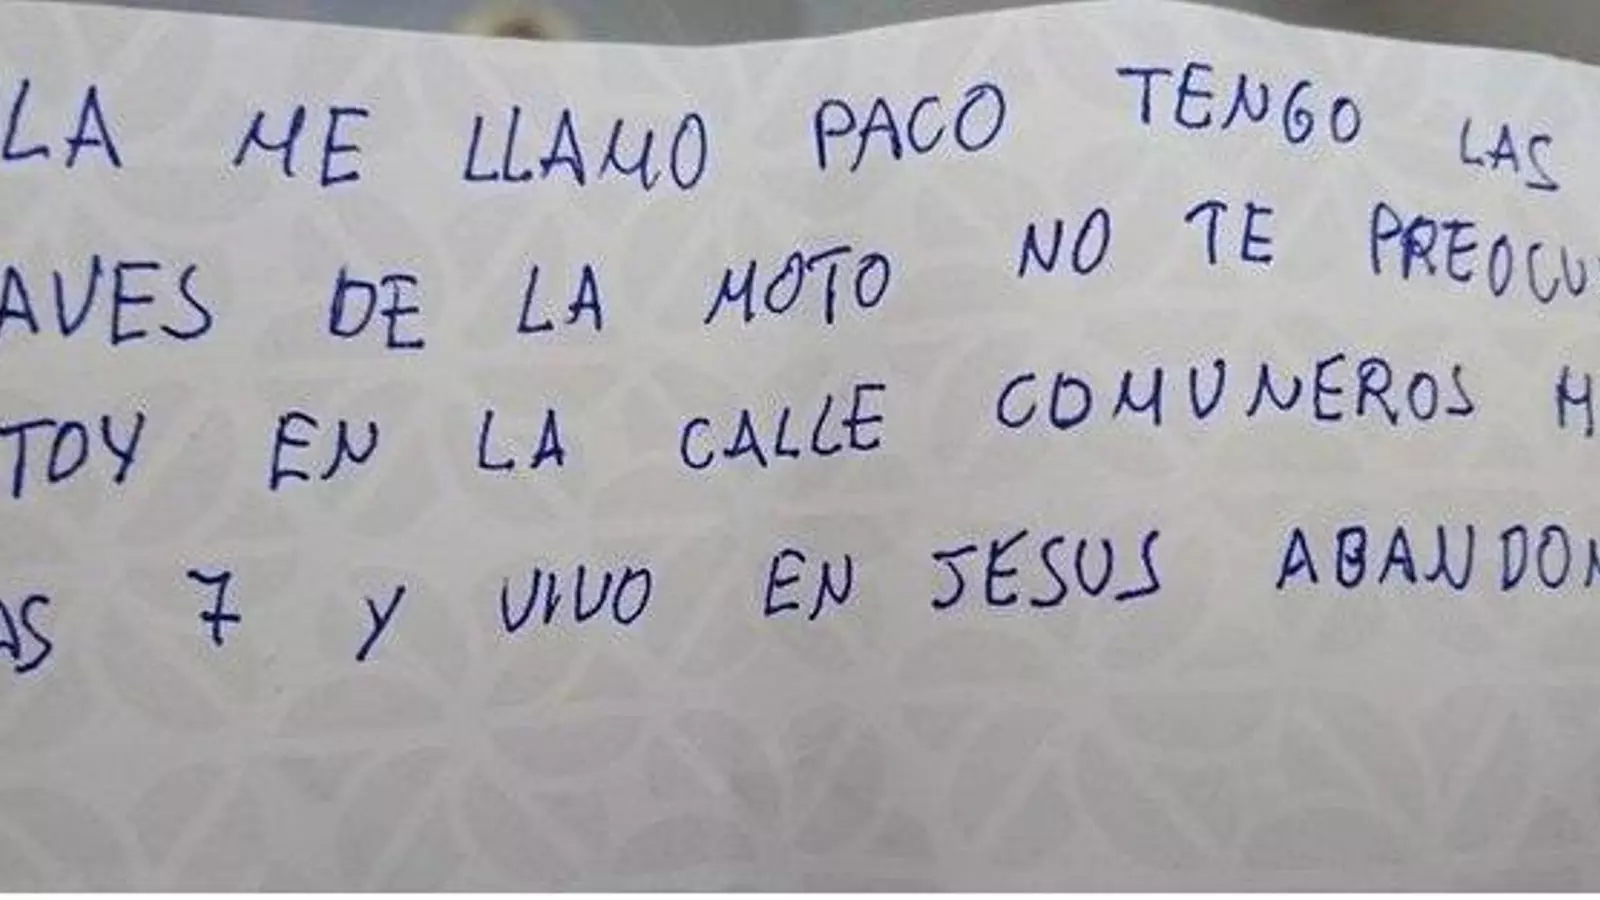 LA ME LLAMO PACO TENGO LAS
AVES DE LA MOTO NO TE PREOCU
TOY EN LA CALLE COMUNEROS H
AS 7 Y VIVO EN JESUS ABANDON